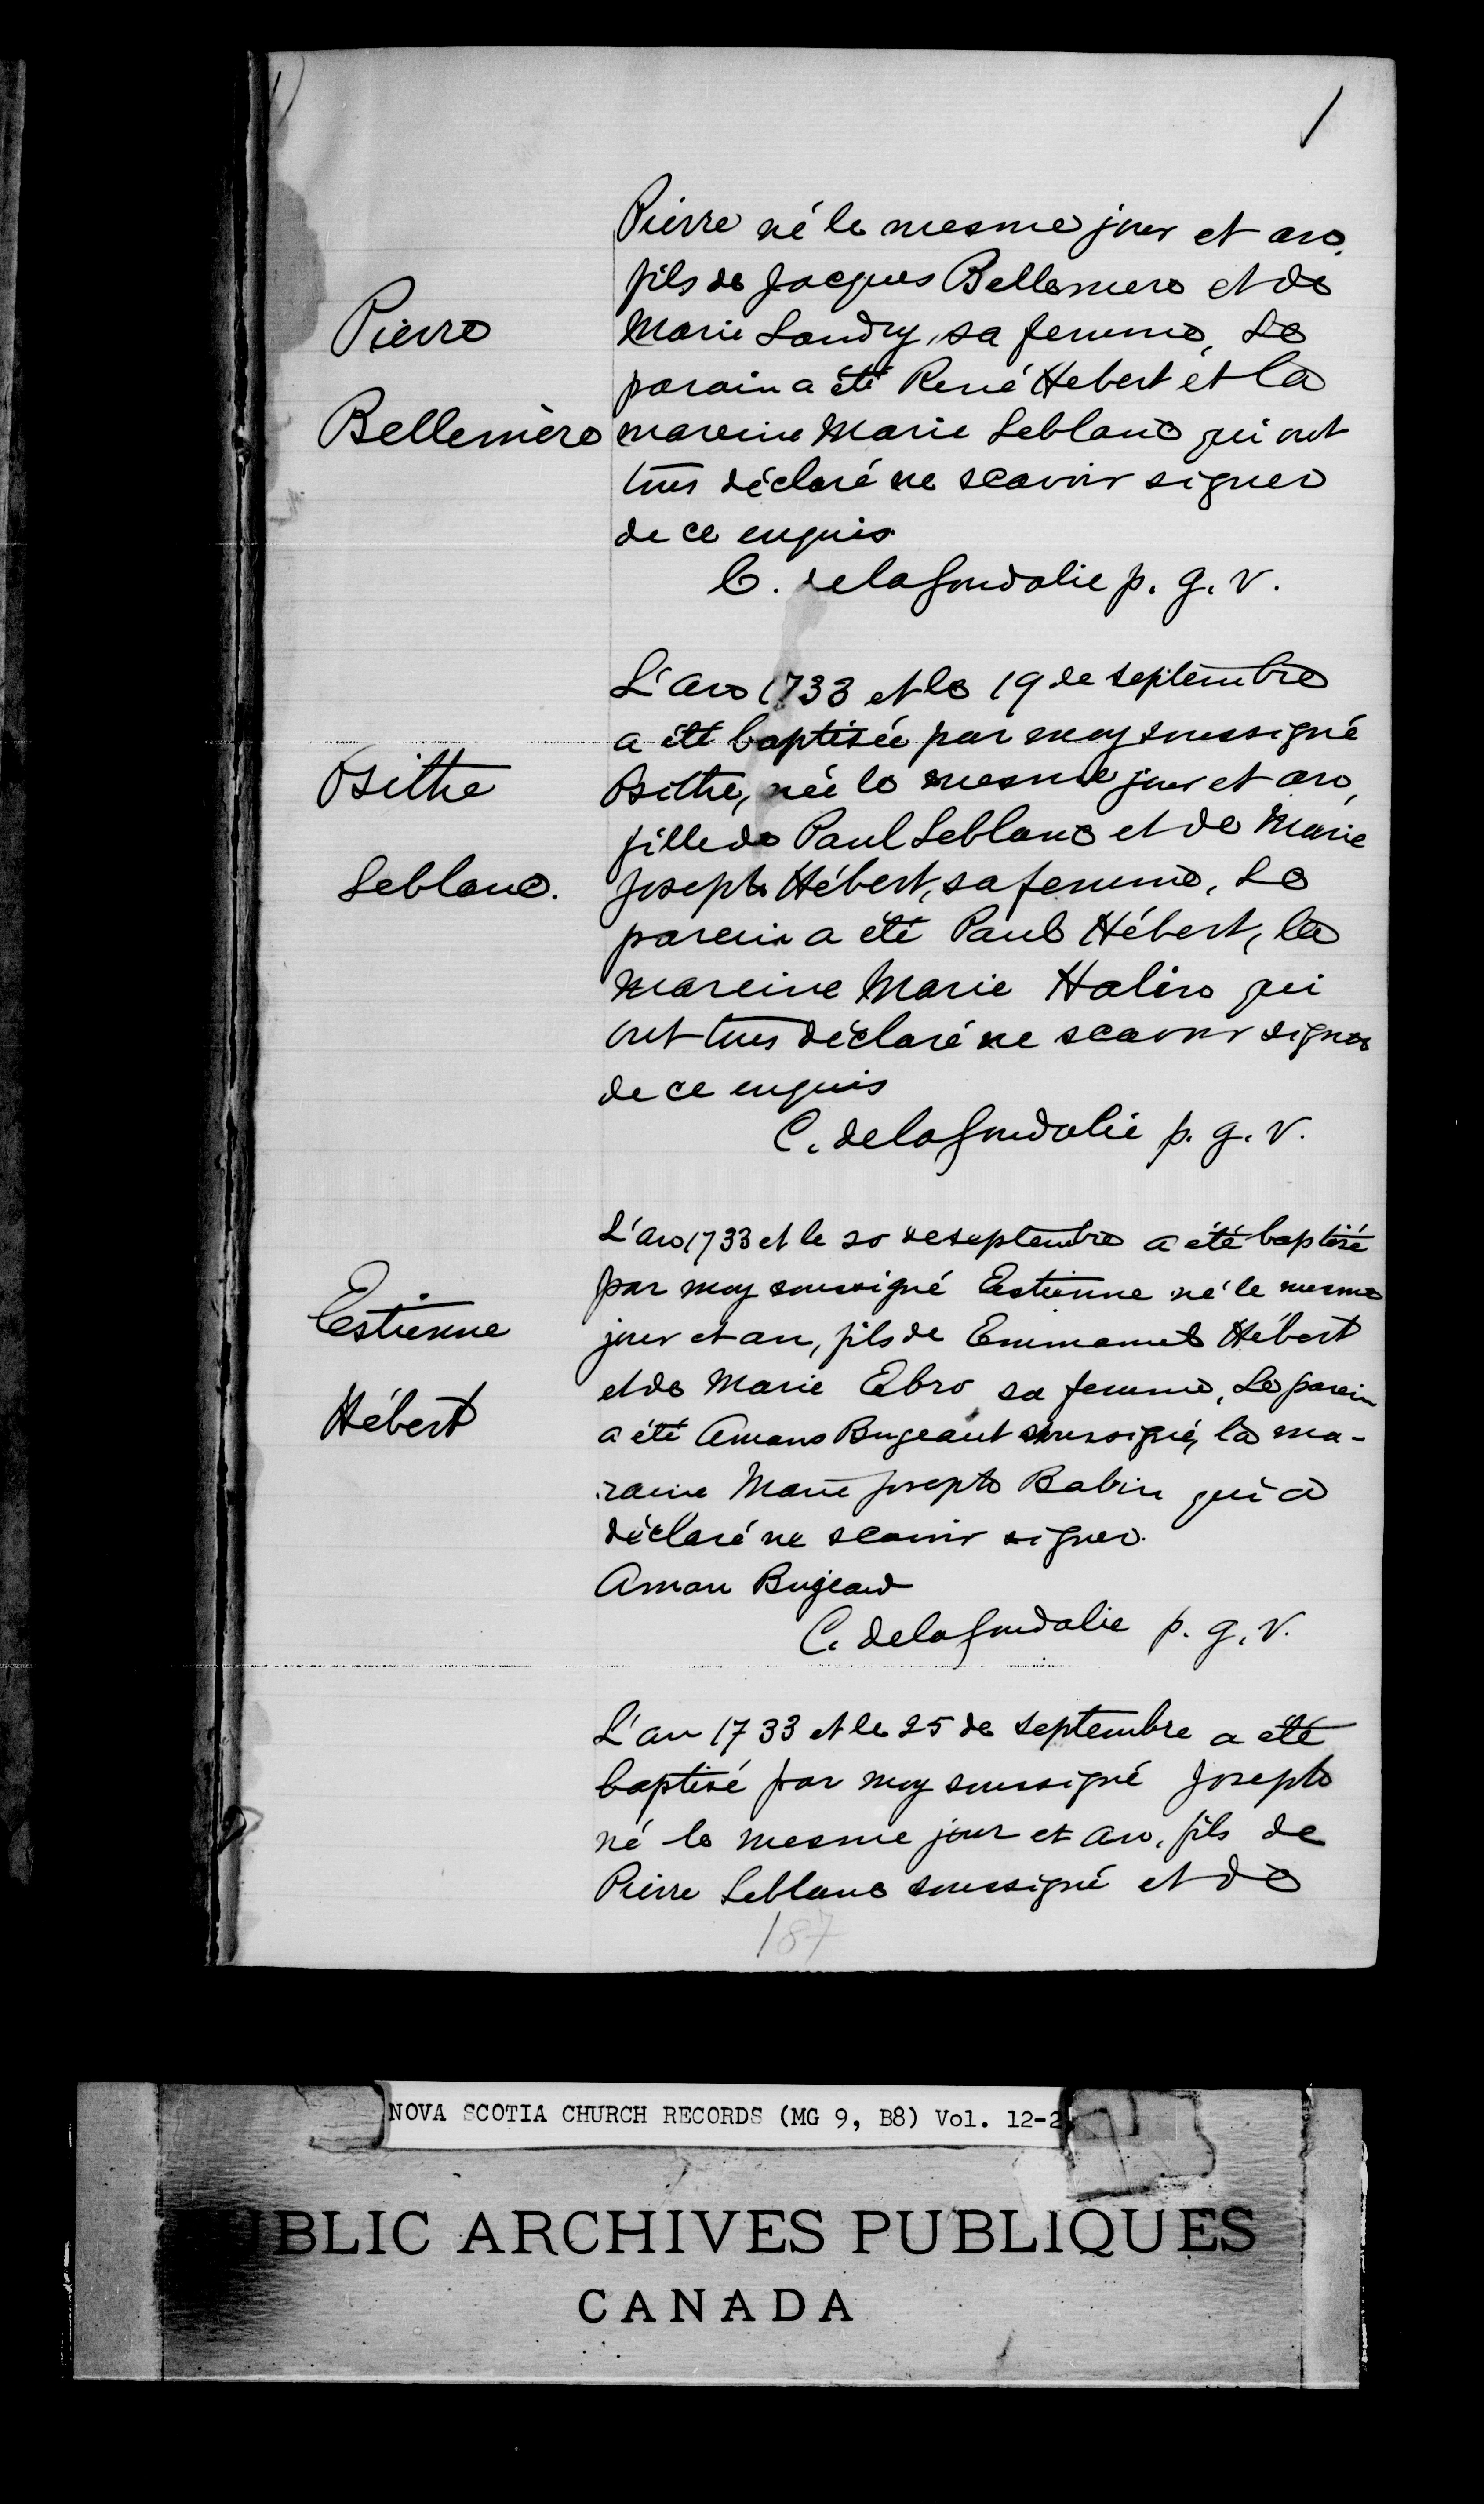 1
Pierre né le mesme jour et an,
fils de Jacques Bellemere et de
Pierre
Marie Landry, sa femme, Le
parain a été René Hebert et la
Bellemère
mareine Marie Leblanc qui ont
tous déclaré ne scavoir signer
de ce enquis
C. delagoudalie p. g. v.
L'an 1733 et le 19 de septembre
a été baptisée par moy soussigné
Osithe
Osithe, née le mesme jour et an,
fille de Paul Leblanc et de Marie
Leblanc.
Joseph Hébert, sa femme, Le
parein a été Paul Hébert, la
mareine Marie Haliro qui
ont tous déclaré ne scavoir signer
de ce enquis
C. delagoudalie p. g. v.
L'an 1733 et le 20 de septembre a été baptisé
par moy soussigné Estienne né le mesme
Estienne
jour et an, fils de Emmanuel Hébert
et de Marie Ebro sa femme, Le parein
Hébert
a été Amans Bugeaut soussigné, la ma-
raine Marie Joseph Babin qui a
déclaré ne scavoir signer.
Aman Bugeaud
C. delagoudalie p. g. v.
L'an 1733 et le 25 de septembre a été
baptisé par moy soussigné Joseph
né le mesme jour et an, fils de
Pierre Leblanc soussigné et de
187
NOVA SCOTIA CHURCH RECORDS (MG 9, B8) Vol. 12-2
UBLIC ARCHIVES PUBLIQUES
CANADA